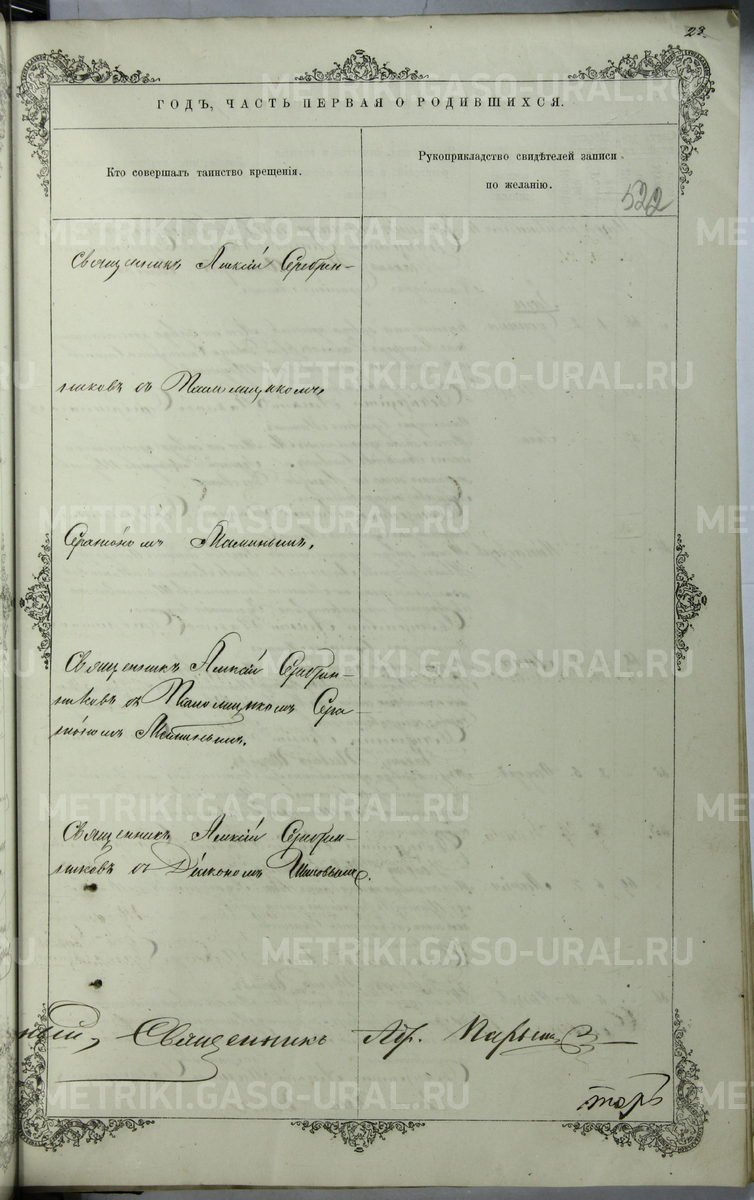 23
ГОДЪ, ЧАСТЬ ПЕРВАЯ О РОДИВШИХСЯ.
Кто совершалъ таинство крещенія.
Рукоприкладство свидѣтелей записи
по желанію.
522
Священникъ Алексій Серебрен-
никовъ съ Псаломщикомъ
Серапіономъ Маминымъ.
Священникъ Алексій Серебрен-
никовъ съ Псаломщикомъ Сера-
піономъ Маминымъ.
Священникъ Алексій Серебрен-
никовъ съ Діакономъ
Священникъ
METRIKI.GASO-URAL.RU